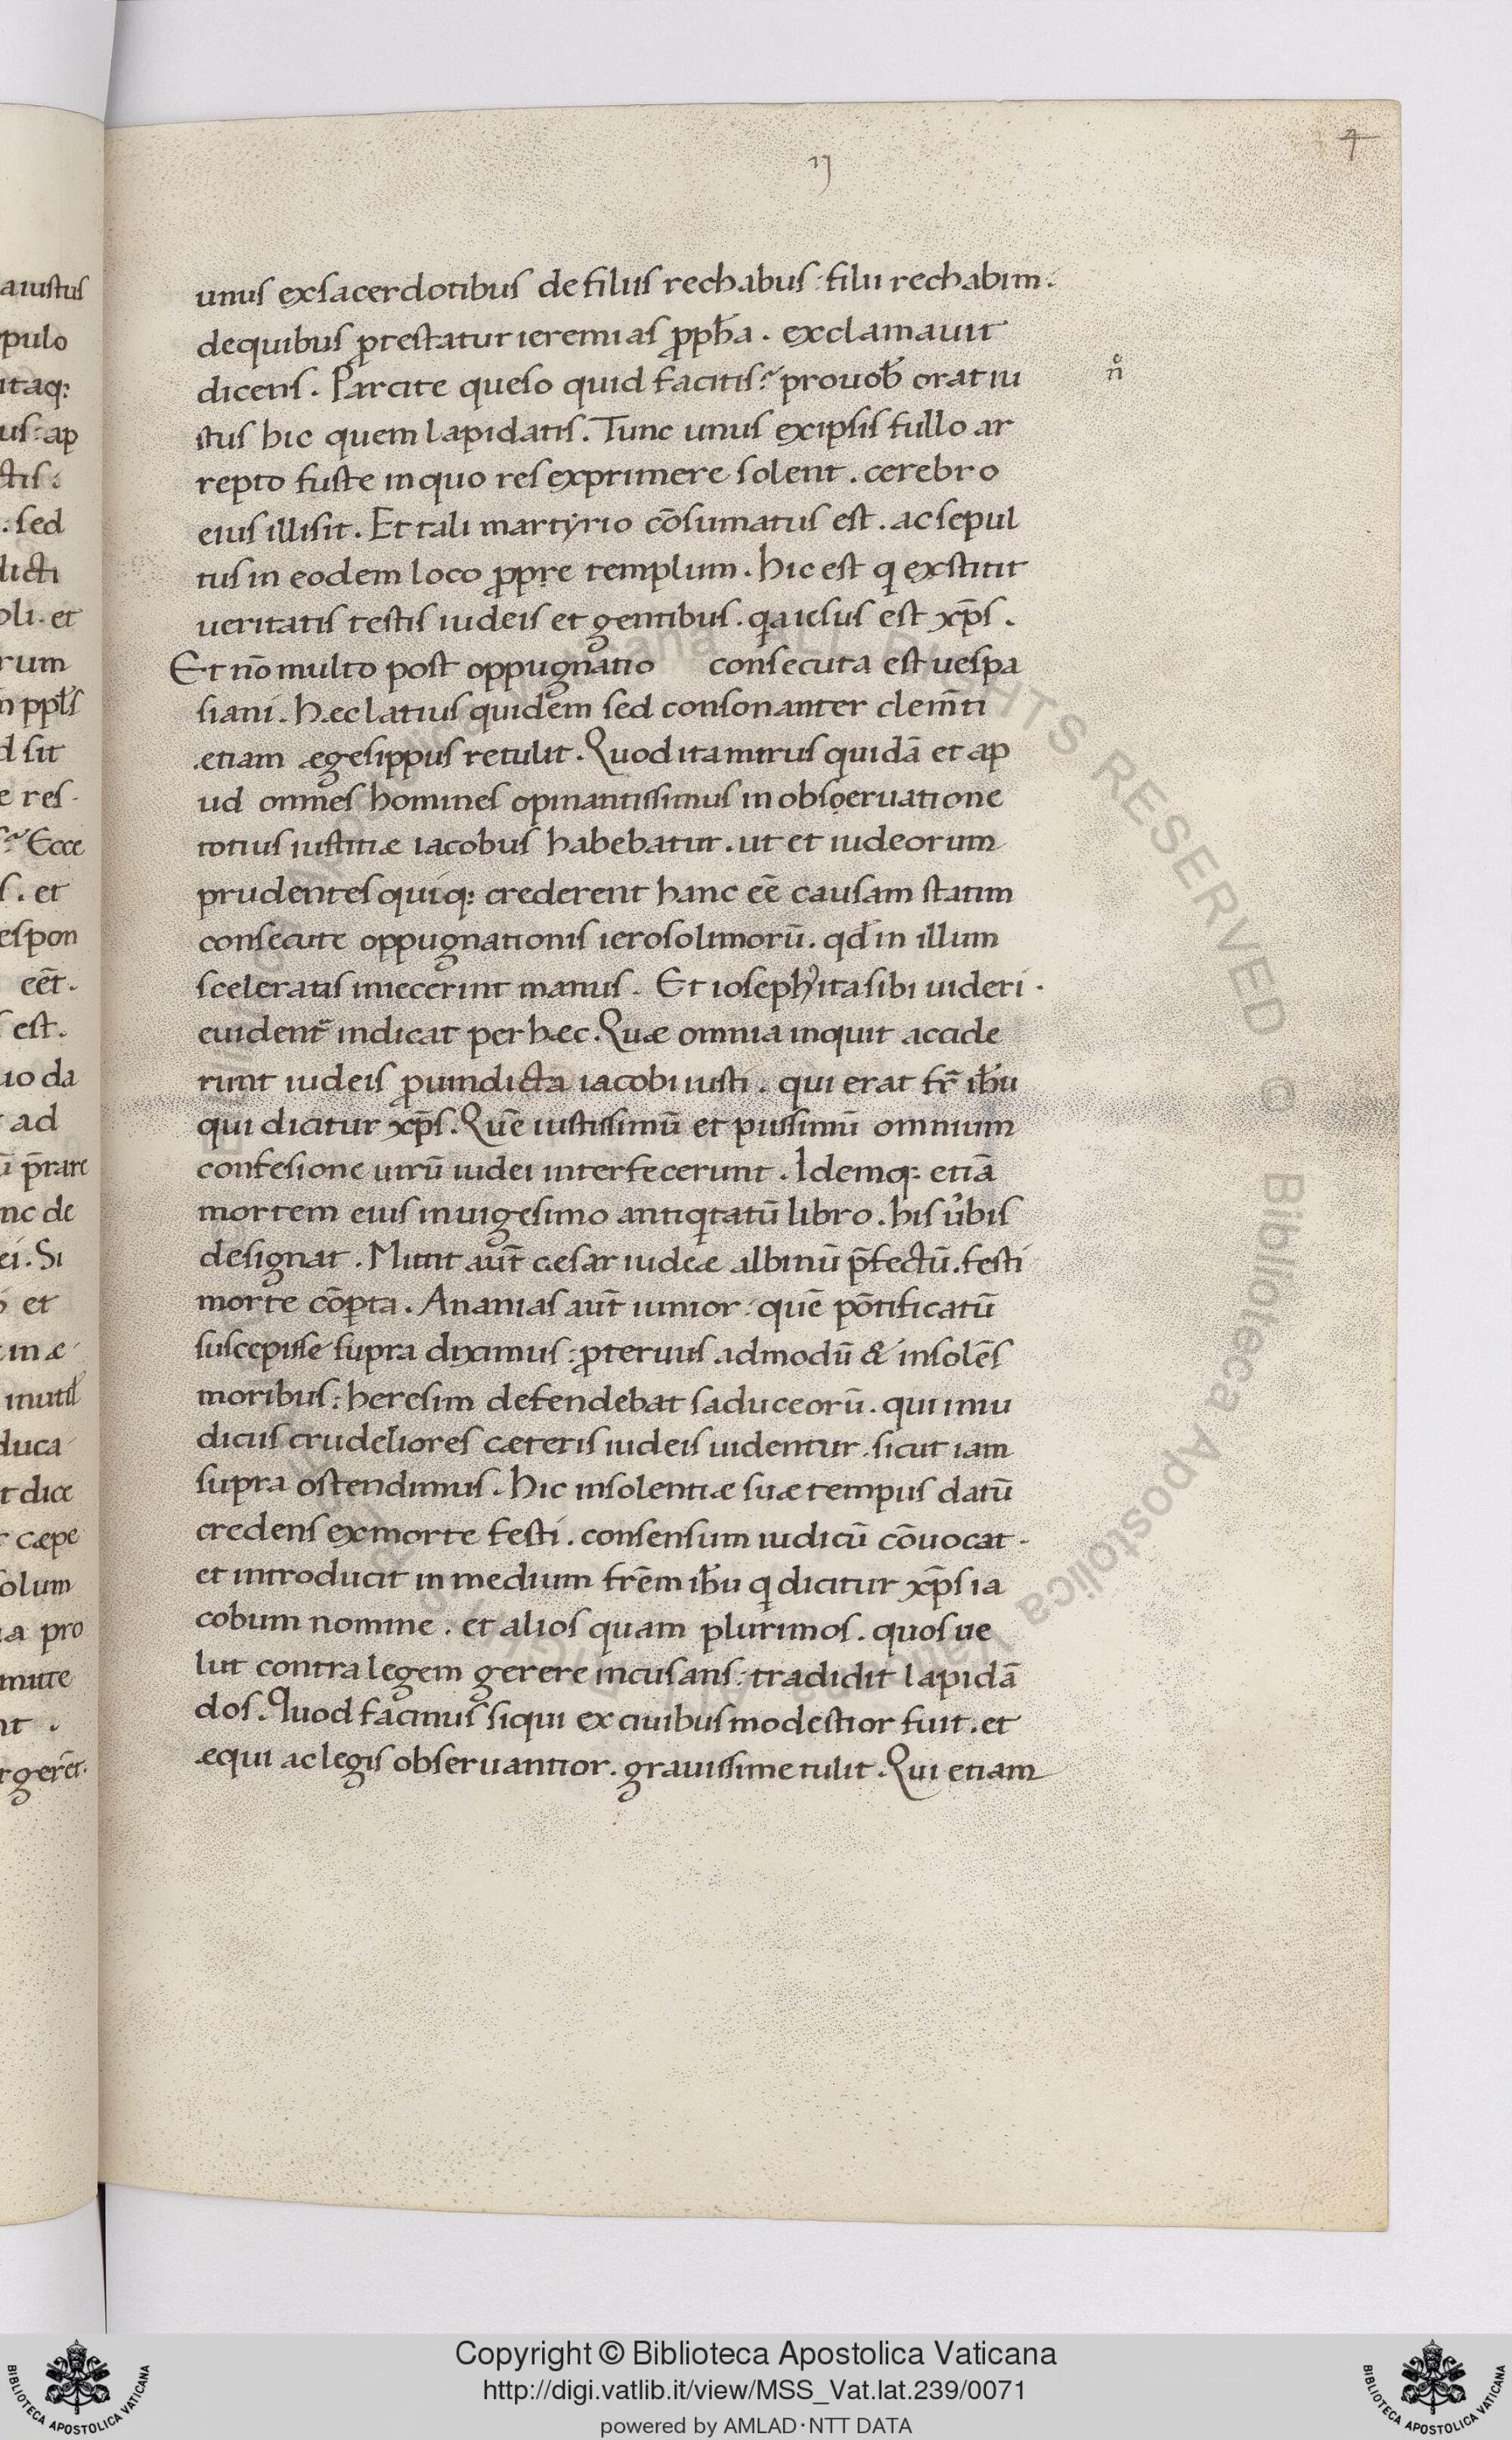 ij
4
unus exsacerdotibus de filiis rechabus : filii rechabim .
dequibus ꝓtestatur ieremias ꝓph̃a . exclamauit
dicens . Parcite queso quid facitis? prouob̃ orat iu
n̊
stus hic quem lapidatis . Tunc unus exipsis fullo ar
repto fuste inquo res exprimere solent . cerebro
eius illisit . Et tali martyrio cōsumatus est . ac sepul
tus in eodem loco ꝓpre templum . hic est q exstitit
ueritatis testis iudeis et gentibus . qa iesus est xp̄s .
Et nō multo post oppugnatio consecuta est uespa
siani . hæc latius quidem sed consonanter clem̄ti
etiam ægesippus retulit . Quod ita mirus quidā et ap
ud omnes homines opinantissimus in obseruatione
totius iustitiæ iacobus habebatur . ut et iudeorum
prudentes quiq: crederent hanc eē causam statim
consecute oppugnationis ierosolimorū . qđ in illum
sceleratis iniecerint manus . Et ioseph' ita sibi uideri .
euident̄ indicat per hæc . Quæ omnia inquit accide
runt iudeis ꝓ uindicta iacobi iusti . qui erat fr̄ ih̃u
qui dicitur xp̄s . Quē iustissimū et piissimū omnium
confesione uirū iudei interfecerunt . Idemq: etiā
mortem eius in uigesimo antiqtatū libro . his u̓bis
designat . Mittit aut̄ cæsar iudeæ albinū p̄fectū . festi
morte cōꝑta . Ananias aut̄ iunior : quē pōtificatū
suscepisse supra diximus : ꝓteruus admodū & insolēs
moribus : heresim defendebat saduceorū . qui iniu
diciis crudeliores cæteris iudeis uidentur . sicut iam
supra ostendimus . hic insolentiæ suæ tempus datū
credens exmorte festi . consensum iudicū cōuocat .
et introducit in medium frēm ih̃u q dicitur xp̄s ia
cobum nomine . et alios quam plurimos . quos ue
lut contra legem gerere incusans : tradidit lapidā
dos . Quod facinus siqui ex ciuibus modestior fuit . et
æqui ac legis obseruantior . grauissime tulit . Qui etiam
Copyright © Biblioteca Apostolica Vaticana
http://digi.vatlib.it/view/MSS_Vat.lat.239/0071
powered by AMLAD·NTT DATA